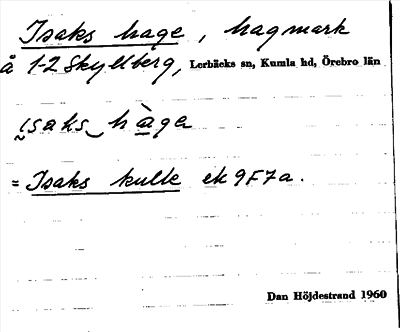 Isaks hage, hagmark
å 1-2 Skyllberg, Lerbäcks sn, Kumla hd, Örebro län
ɩsaks‿hàga
= Isaks kulle ek 9F7a.
Dan Höjdestrand 1960